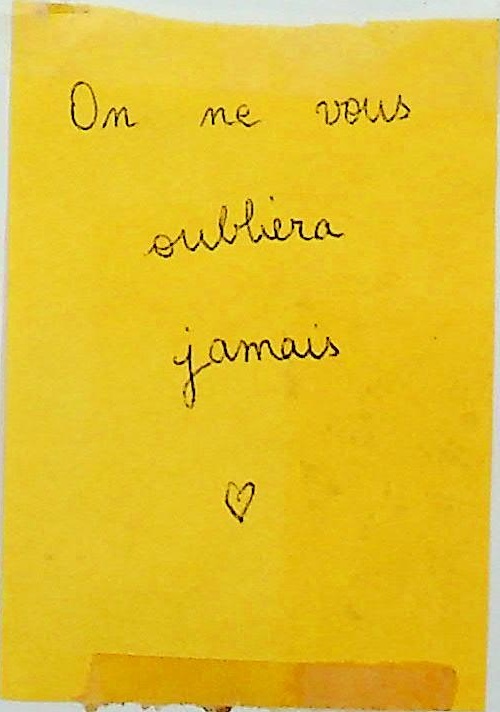 On ne vous
oubliera
jamais
♡